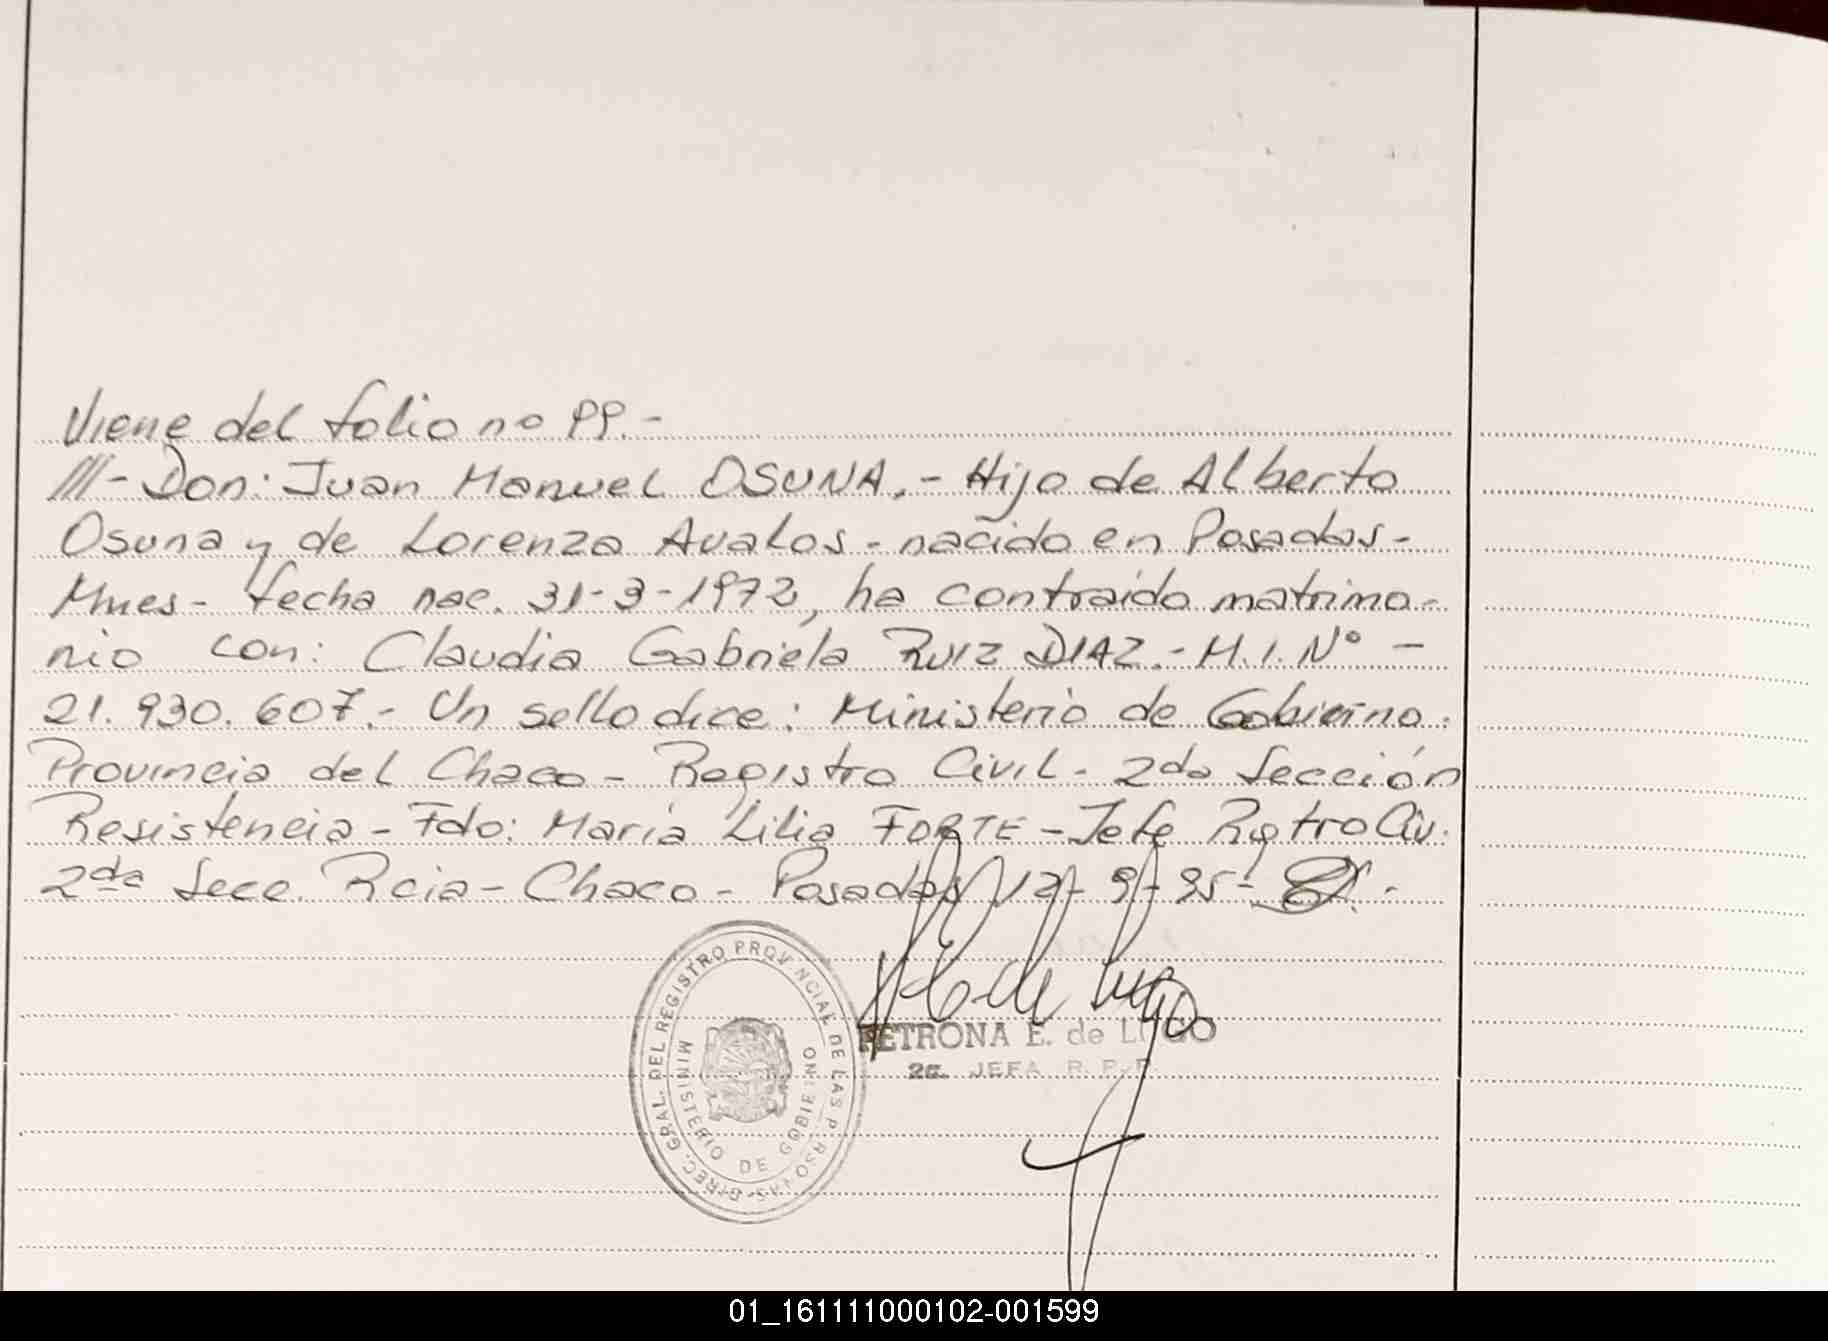 Viene del folio no 99.-
///- Don: Juan Manuel OSUNA.- Hijo de Alberto
Osuna y de Lorenza Avalos - nacido en Posadas-
Mnes- fecha nac. 31-3-1972, ha contraido matrimo-
nio con: Claudia Gabriela Ruiz DIAZ.- M.I. Nº -
21.930.607.- Un sello dice: Ministerio de Gobierno.
Provincia del Chaco - Registro Civil - 2da Sección
Resistencia - Fdo: María Lilia FORTE - Jefe Rgtro Civ.
2da Secc. Rcia - Chaco - Posadas 12-9-95-
DIREC. GRAL. DEL REGISTRO PROVINCIAL DE LAS PERSONAS-
MINISTERIO DE GOBIERNO
PETRONA E. de LUGO
2a. JEFA R. P. P.
01_161111000102-001599